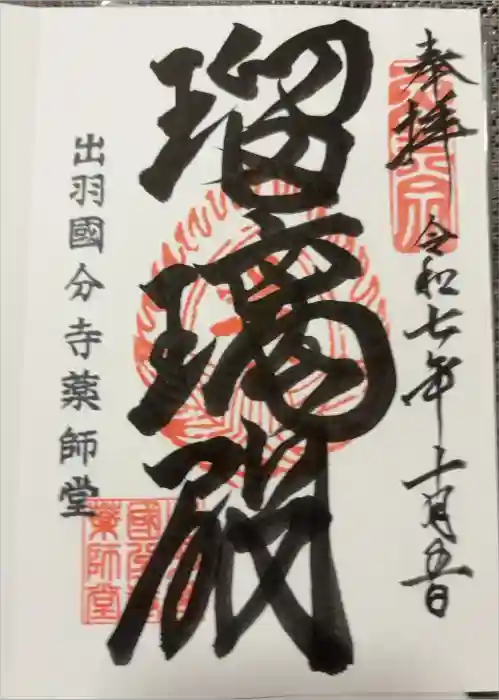 奉拝
令和七年十一月五日
瑠璃殿
出羽國分寺薬師堂
國分寺
薬師堂